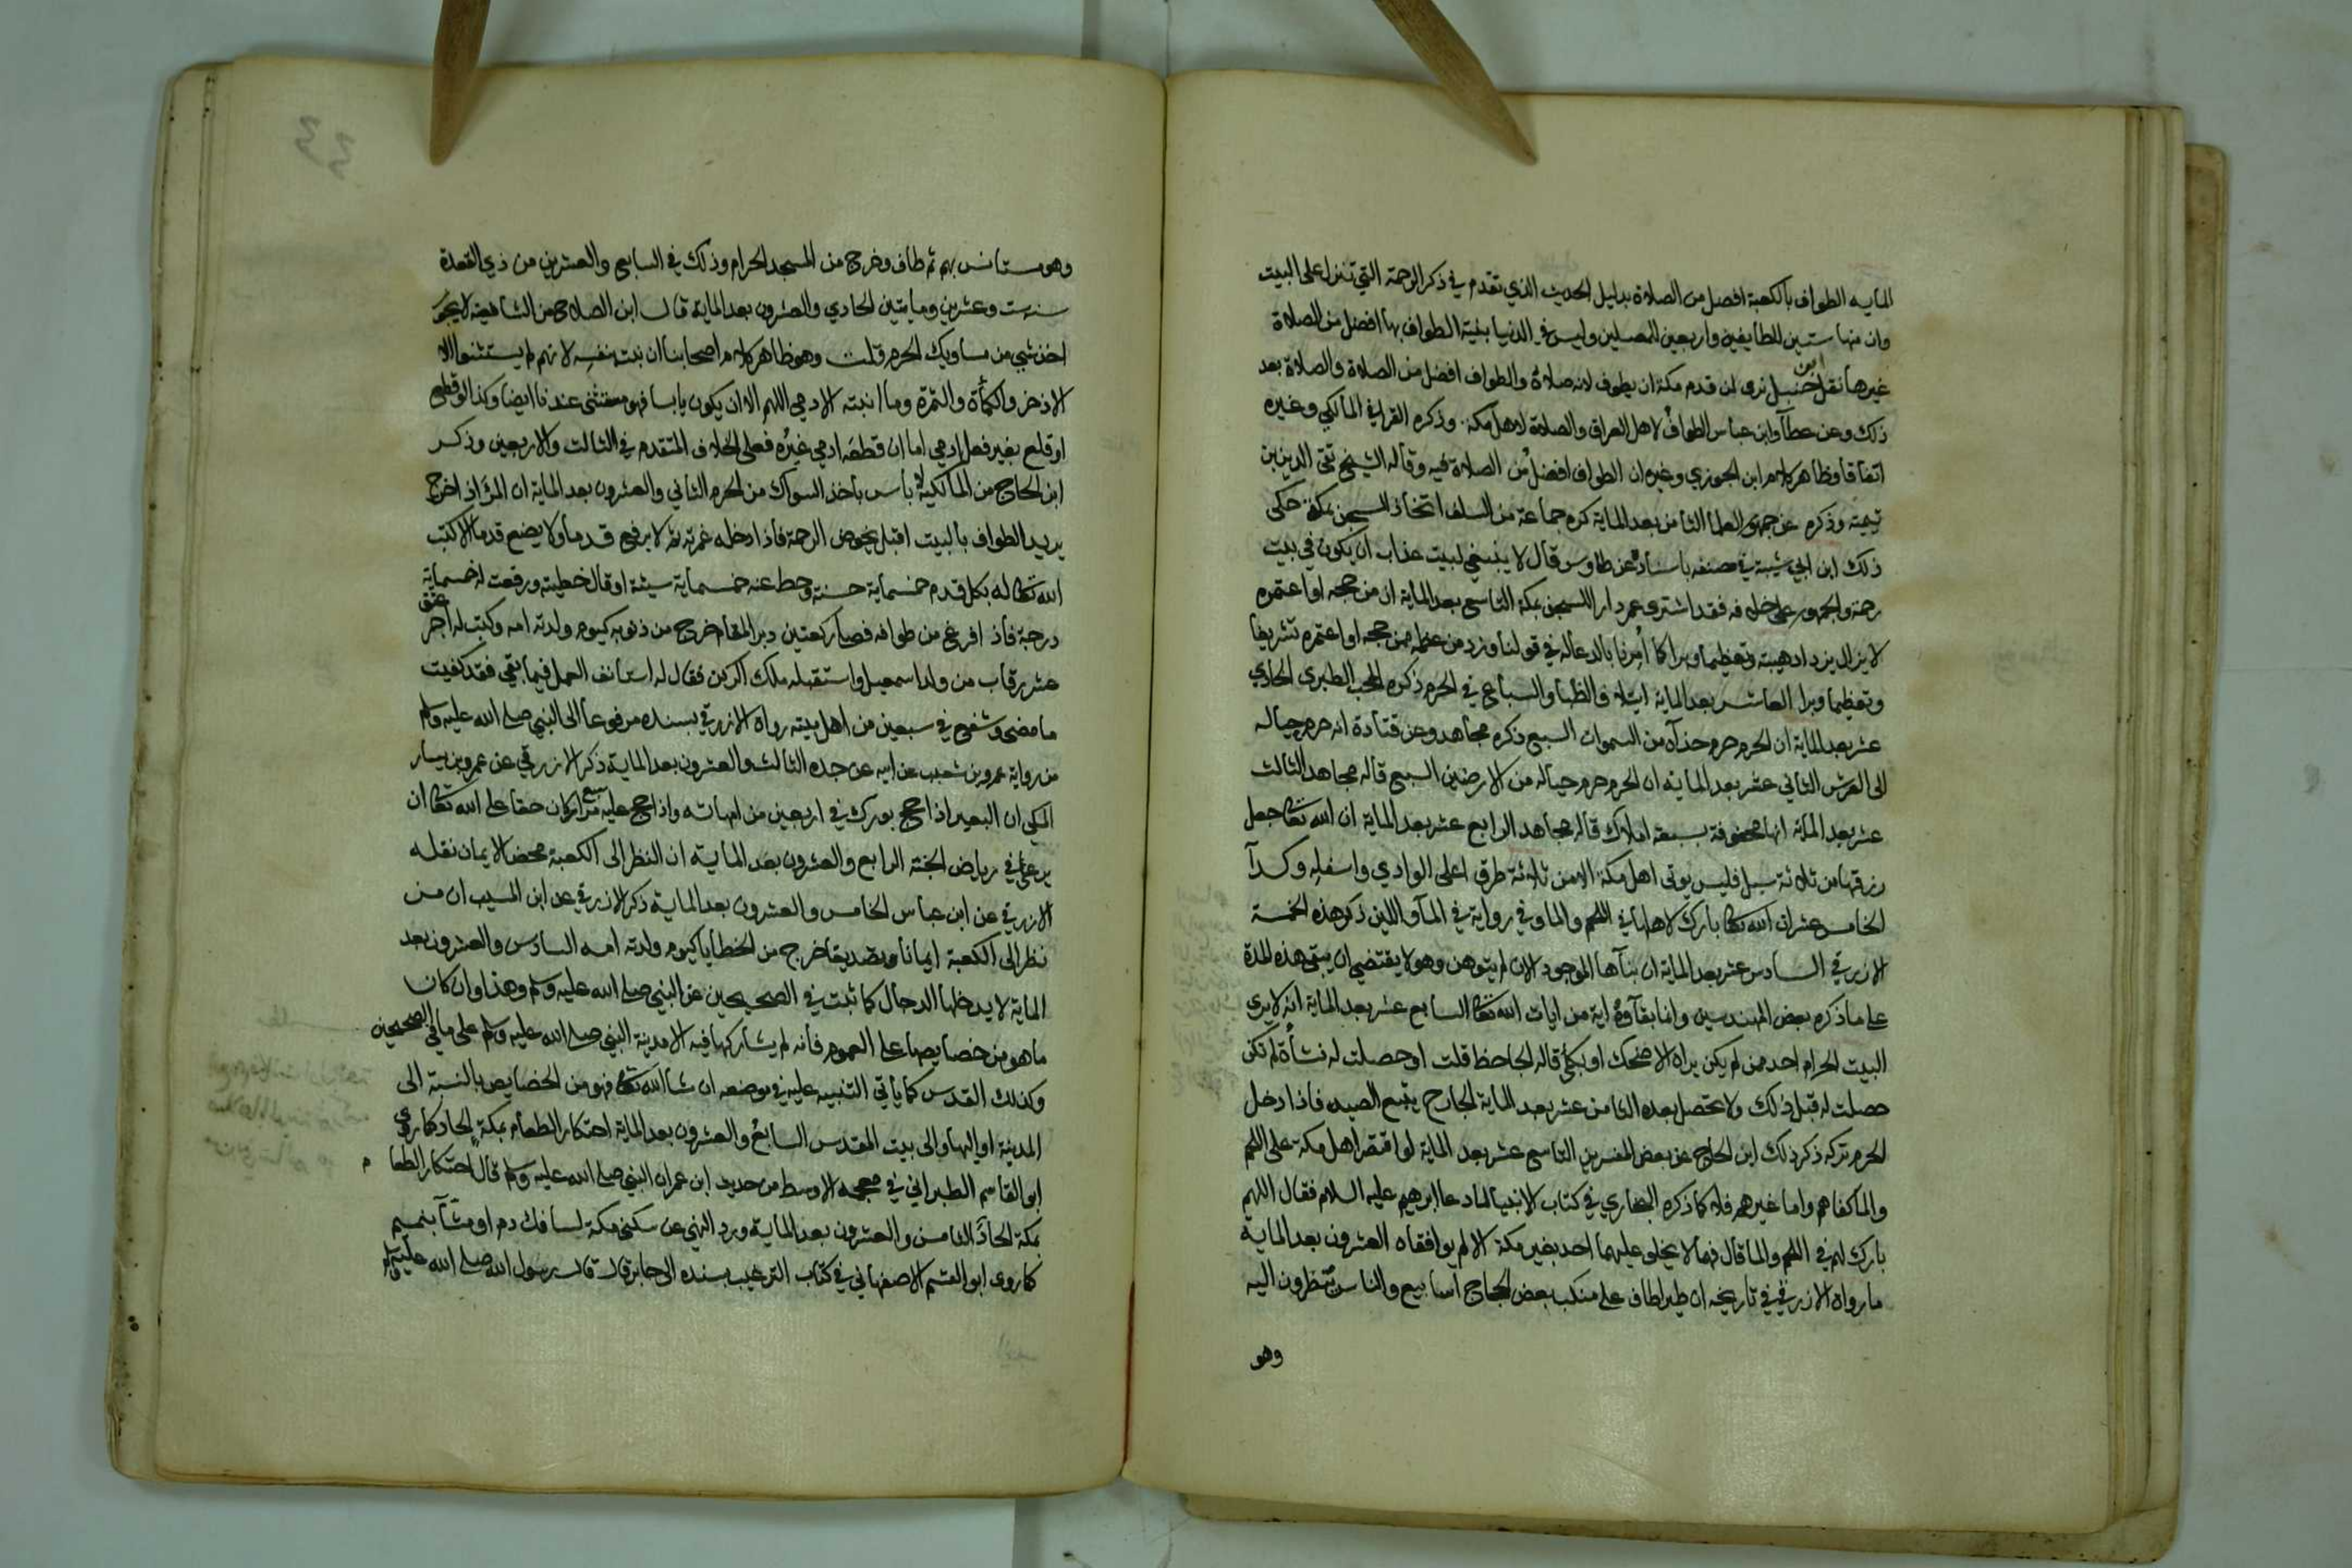 المايه الطواف بالكعبة افضل من الصلاة بدليل الحديث الذي تقدم في ذكر الرحمة التي تنزل على البيت
وان منها ستين للطايفين واربعين للمصلين وليس في الدنيا بنية الطواف بها افضل من الصلاة
غيرها نقل ابن حنبل نرى لمن قدم مكة ان يطوف لانه صلاة والطواف افضل من الصلاة والصلاة بعد
ذلك وعن عطآ وابن عباس الطواف لاهل العراق والصلاة لاهل مكة وذكره القرافي المالكي وغيره
اتفاقا وظاهر كلام ابن الجوزي وغيره ان الطواف افضل من الصلاة فيه وقاله الشيخ تقى الدين بن
تيمية وذكره عن جمهور العلما الثامن بعد الماية كره جماعة من السلف اتخاذ السجن بمكة حكى
ذلك ابن ابي شيبة في مصنفه باسناده عن طاوس قال لا ينبغي لبيت عذاب ان يكون في بيت
رحمة والجمهور على خلافه فقد اشترى عمر دارا للسجن بمكة التاسع بعد الماية ان من حجه او اعتمره
لا يزال يزداد هيبته وتعظيما وبرا كما أمرنا بالدعا له في قولنا وزد من عظمه ممن حجه او اعتمره تشريفا
وتعظيما وبرا العاشر بعد الماية ايتلاف الظبا والسباع في الحرم ذكره المحب الطبري الحادي
عشر بعد الماية ان الحرم حرم حذآه من السموات السبع ذكره مجاهد وعن قتادة انه حرم حياله
الى العرش الثاني عشر بعد الماية ان الحرم حرم حياله من الارضين السبع قاله مجاهد الثالث
عشر بعد الماية انها محفوفة بسبعة املاك قاله مجاهد الرابع عشر بعد الماية ان الله تعالى جعل
رزقها من ثلاثة سبل فليس يوتى اهل مكة الا من ثلاثة طرق اعلى الوادي واسفله وكدآ
الخامس عشر ان الله تعالى بارك لاهلها في اللحم والما وفي رواية في المآ واللبن ذكر هذه الخمسة
الازرقي السادس عشر بعد الماية ان بنآها الموجود الان لم يتوهن وهو لا يقتضي ان يبقى هذه المدة
على ما ذكره بعض المهندسين وانما بقآوه اية من ايات الله تعالى السابع عشر بعد الماية انه لا يرى
البيت الحرام احد ممن لم يكن يراه الا ضحك او بكى قاله الجاحظ قلت او حصلت له نشأة لم تكن
حصلت له قبل ذلك ولا تحصل بعده الثامن عشر بعد الماية الجارح يتبع الصيد فاذا دخل
الحرم تركه ذكر ذلك ابن الحاج عن بعض المفسرين التاسع عشر بعد الماية لو اقتصر اهل مكة على اللحم
والما كفاهم واما غيرهم فلا كما ذكره البخاري في كتاب الانبيا لما دعا ابرهيم عليه السلام فقال اللهم
بارك لهم في اللحم والما قال فهما لا يخلو عليهما احد بغير مكة الا لم يوافقاه العشرون بعد الماية
ما رواه الازرقي في تاريخه ان طيرا طاف على منكب بعض الحجاج اسابيع والناس ينظرون اليه
وهو
وهو مستانس بهم ثم طاف وخرج من المسجد الحرام وذلك في السابع والعشرين من ذي القعدة
سنة ست وعشرين ومايتين الحادي والعشرون بعد الماية قال ابن الصلاح من الشافعية لا يجوز
اخذ شي من مساويك الحرم قلت وهو ظاهر كلام اصحابنا ان نبت بنفسه لانهم لم يستثنوا الا
الاذخر والكمأة والثمرة وما انبته الادمي اللهم الا ان يكون يابسا فهو مستثنى عندنا ايضا وكذا لو قطع
او قلع بغير فعل ادمي اما ان قطعه ادمي غيره فعلى الخلاف المتقدم في الثالث والاربعين وذكر
ابن الحاج من المالكية لا باس باخذ السواك من الحرم الثاني والعشرون بعد الماية ان المرء اذا خرج
يريد الطواف بالبيت اقبل يخوض الرحمة فاذا دخله غمرته ثم لا يرفع قدما ولا يضع قدما الا كتب
الله تعالى له بكل قدم خمسماية حسنة وحط عنه خمسماية سيئة او قال خطيئة ورفعت له خمسماية
درجة فاذا فرغ من طوافه فصلى ركعتين دبر المقام خرج من ذنوبه كيوم ولدته امه وكتب له اجر عتق
عشر رقاب من ولد اسمعيل واستقبله ملك الركن فقال له استانف العمل فيما بقي فقد كفيت
ما مضى وشفع في سبعين من اهل بيته رواه الازرقي بسنده مرفوعا الى النبي صلى الله عليه وسلم
من رواية عمرو بن شعيب عن ابيه عن جده الثالث والعشرون بعد الماية ذكر الازرقي عن عمرو بن يسار
المكي ان البعير اذا حج بورك في اربعين من امهاته واذا حج عليه سبع مرار كان حقا على الله تعالى ان
يرعى في رياض الجنة الرابع والعشرون بعد الماية ان النظر الى الكعبة محض الايمان نقله
الازرقي عن ابن عباس الخامس والعشرون بعد الماية ذكر الازرقي عن ابن المسيب ان من
نظر الى الكعبة ايمانا وتصديقا خرج من الخطايا كيوم ولدته امه السادس والعشرون بعد
الماية لا يدخلها الدجال كما ثبت في الصحيحين عن النبي صلى الله عليه وسلم وهذا وان كان
ما هو من خصايصها على العموم فانه لم يشاركها فيه الا مدينة النبي صلى الله عليه وسلم على ما في الصحيحين
وكذلك القدس كما ياتي التنبيه عليه في موضعه ان شا الله تعالى فهو من الخصايص بالنسبة الى
المدينة او اليها والى بيت المقدس السابع والعشرون بعد الماية احتكار الطعام بمكة الحاد كما روى
ابو القاسم الطبراني في معجمه الاوسط من حديث ابن عمر ان النبي صلى الله عليه وسلم قال احتكار الطعام
بمكة الحاد الثامن والعشرون بعد الماية ورد النهي عن سكنى مكة لسافك دم او مشآ بنميم
كما روى ابو القسم الاصفهاني في كتاب الترغيب بسنده الى جابر قال قال رسول الله صلى الله عليه وسلم